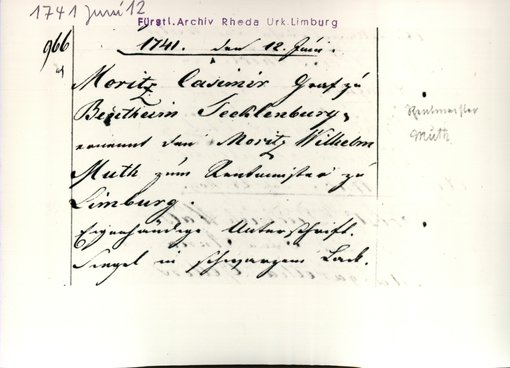 1741 Juni 12
Fürstl. Archiv Rheda Urk. Limburg
966
1741. den 12. Juni.
Moritz Casimir Graf zu
Bentheim Tecklenburg,
ernennt den Moritz Wilhelm
Muth zum Rentmeister zu
Limburg.
Eigenhändige Unterschrift.
Siegel in schwarzem Lack.
Rentmeister
Muth